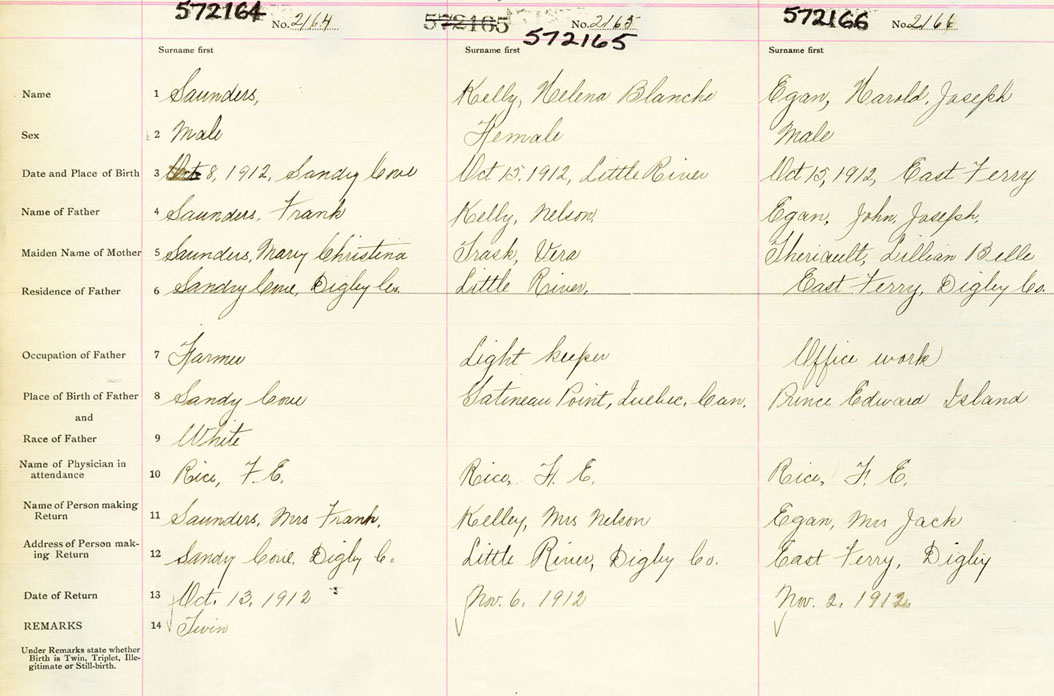 572164 No. 2164 572165 No. 2165 572166 No. 2166
572165
Surname first Surname first Surname first
Name 1 Saunders, Kelly, Helena Blanche Egan, Harold, Joseph
Sex 2 Male Female Male
Date and Place of Birth 3 Oct 8, 1912, Sandy Cove Oct 15, 1912, Little River Oct 15, 1912, East Ferry
Name of Father 4 Saunders, Frank Kelly, Nelson Egan, John, Joseph.
Maiden Name of Mother 5 Saunders, Mary Christina Trask, Vera Theriault, Lillian Belle
Residence of Father 6 Sandy Cove, Digby Co. Little River, East Ferry, Digby Co.
Occupation of Father 7 Farmer Light keeper Office work
Place of Birth of Father 8 Sandy Cove Gatineau Point, Quebec, Can. Prince Edward Island
and
Race of Father 9 White
Name of Physician in
attendance 10 Rice, F. E. Rice, F. E. Rice, F. E.
Name of Person making
Return 11 Saunders, Mrs Frank, Kelley, Mrs Nelson Egan, Mrs Jack
Address of Person mak-
ing Return 12 Sandy Cove, Digby Co Little River, Digby Co. East Ferry, Digby
Date of Return 13 Oct. 13, 1912 Nov. 6. 1912 Nov. 2, 1912
REMARKS 14 Twin
Under Remarks state whether
Birth is Twin, Triplet, Ille-
gitimate or Still-birth.